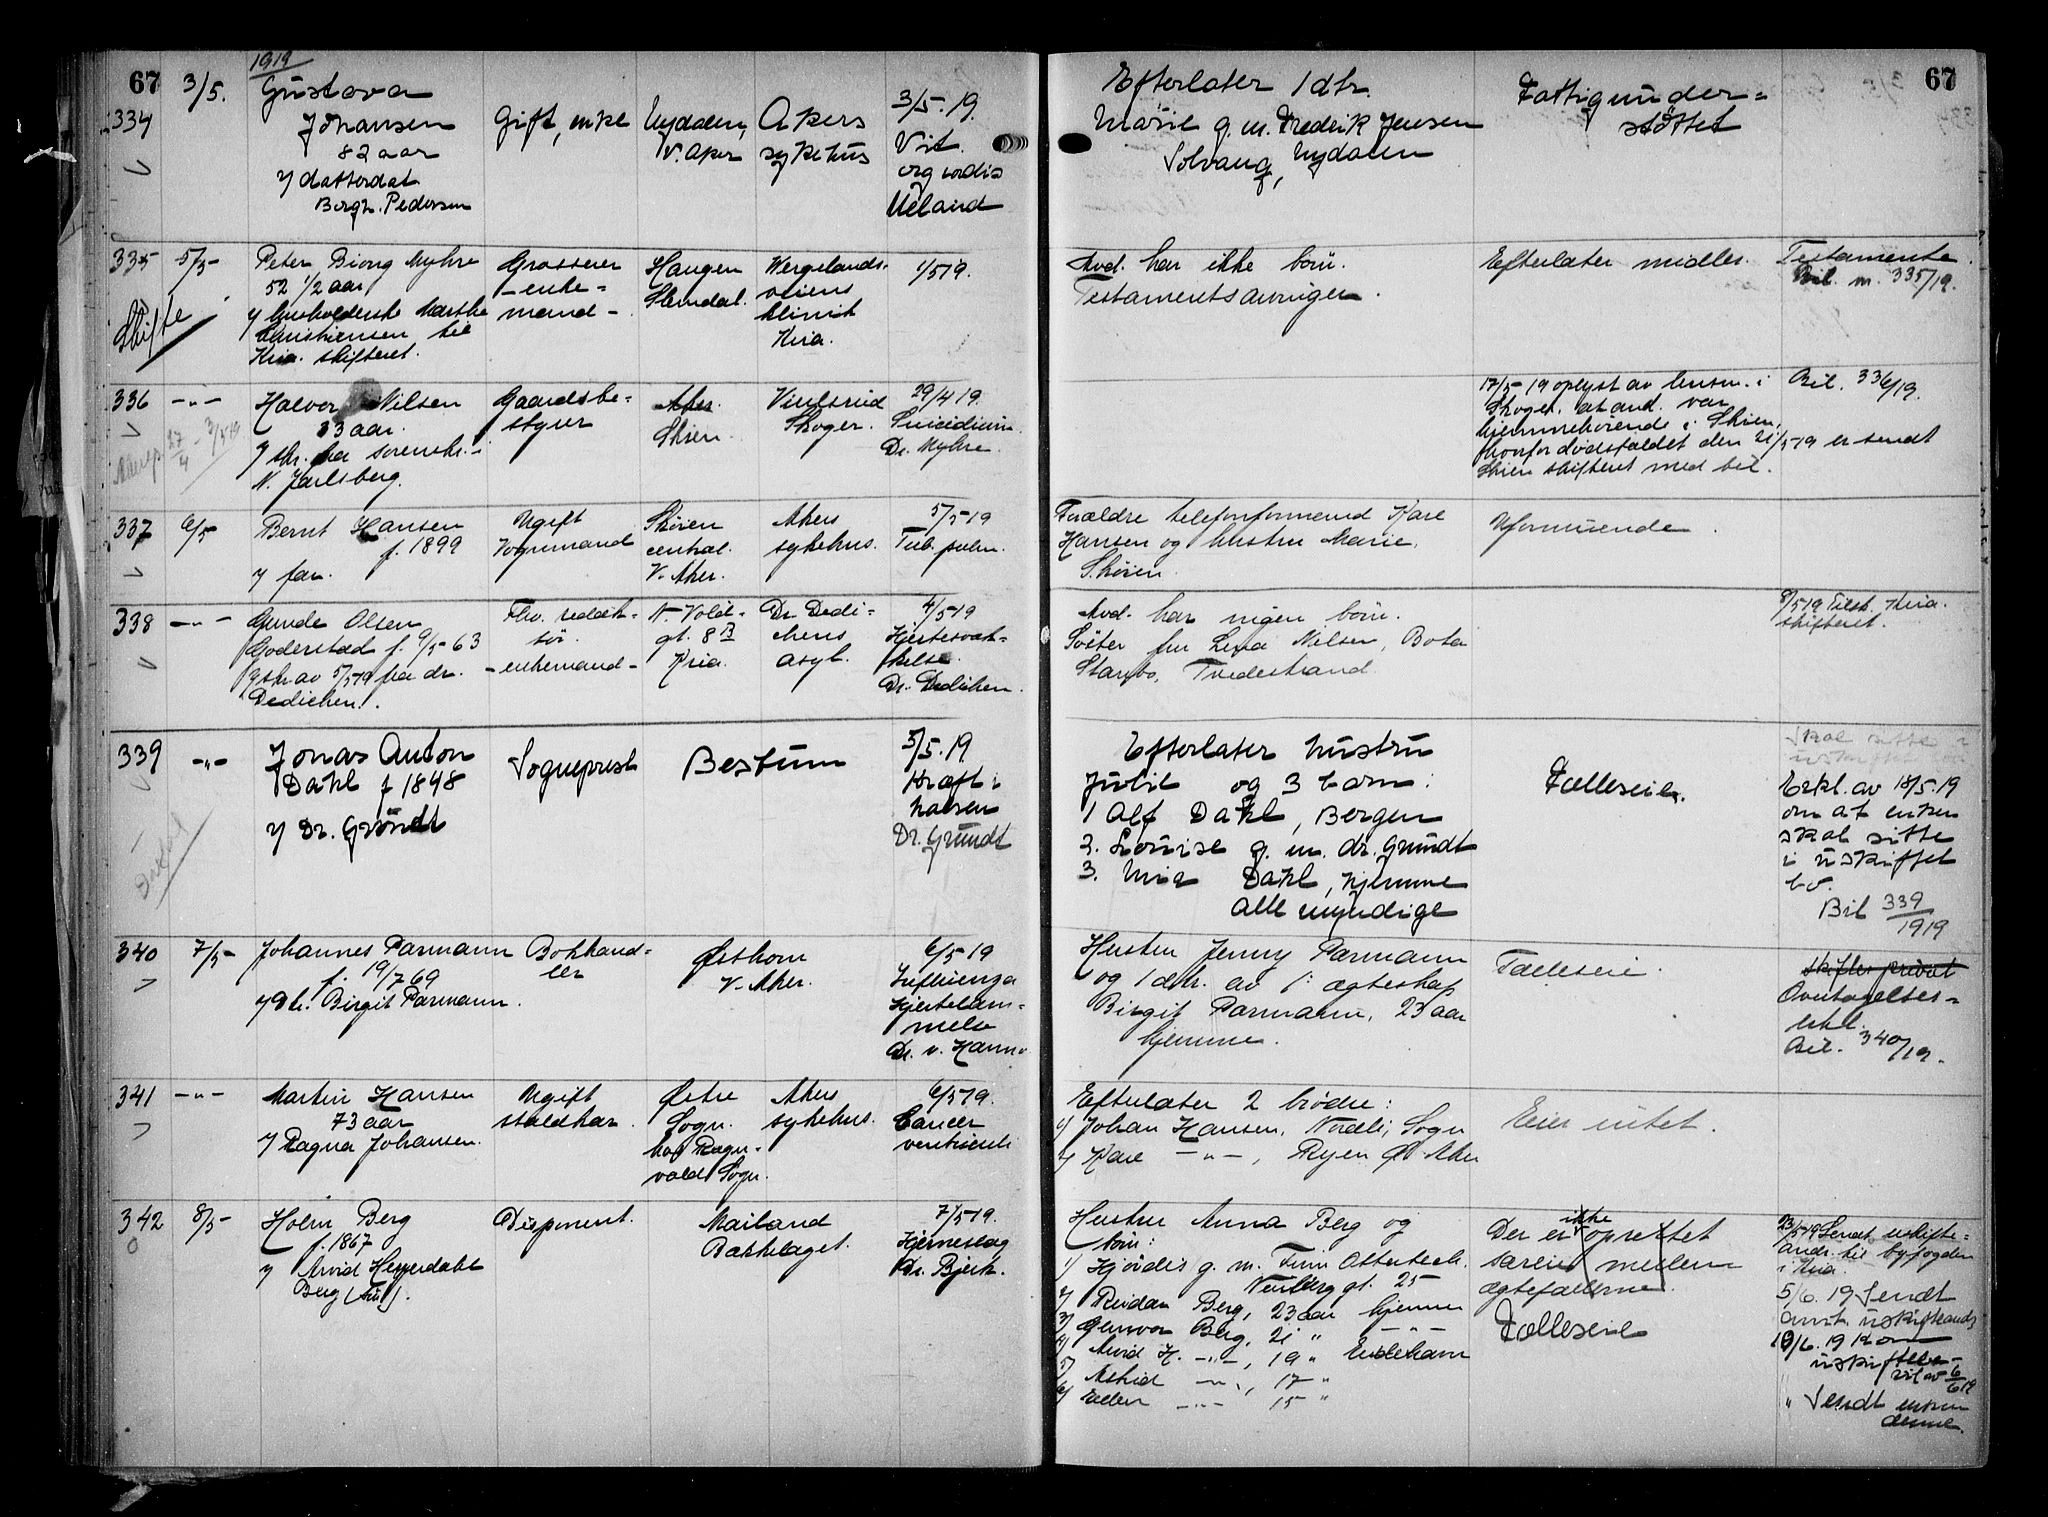 67
1919
334
3/5.
Gustava
Johansen
82 aar
datterdat
Borgh. Pedersen
Gift, enke
Nydalen,
V. Aker
Akers
sykehus
3/5-19.
Vit.
org cordis
Ueland
Efterlater 1 dtr.
Marie g.m. Fredrik Jensen
Solvang, Nydalen
Fattigunder=
støttet
67
335
Skifte
5/5-
Peter Biong Myhre
52 1/2 aar
husholderske Marthe
Christiansen til
Kria. skifteret.
Grosserer
-enke-
mand-
Haugen
Slemdal.
Wergelands-
veiens
klinik
Kria.
1/519.
Avd. har ikke barn.
Testamentsarvinger.
Efterlater midler.
Testamente.
Bil. m. 335/19.
336
-"-
Halvor Nilsen
33 aar.
skr. fra sorenskr. i
N. Jarlsberg.
Gaardsbe=
styrer
Aker.
Skien.
Skoger.
29/4 19.
Suicidium.
Dr. Myhre.
17/5-19 oplyst av lensm. i
Skoger. at avd. var
hjemmehørende i Skien,
hvorfor dødsfaldet den 21/5-19 er sendt
Skien skifteret med bil.
Bil. 336/19.
337
6/5
Bernt Hansen
f. 1899
far.
Ugift
Vognmand
Skøien
central.
V. Aker.
Akers
sykehus.
5/5 19
Tub. pulm.
Forældre telefonformand Karl
Hansen og hustru Marie,
Skøien.
Uformuende.
338
-"-
Gunde Olsen
Goderstad f. 9/5-63
skr. av 5/519 fra dr.
Dedichen.
Fhv. redak-
tør
-enkemand-
N. Vold-
gt. 8 B
Kria.
Dr. Dedi-
chens
asyl.
4/519
Hjertesvæk-
kelse.
Dr. Dedichen.
Avd. har ingen barn.
Søster fru Lena Nilsen, Bota
Tvedestrand.
8/519 Tilst. Kria.
skifteret.
339
-"-
Jonas Anton
Dahl f 1848
Dr. Grundt
Sogneprest
Bestum
5/5.19
Kræft i
halsen
Dr. Grundt
Efterlater hustru
Julie og 3 barn:
1 Alf Dahl, Bergen
2. Louise g.m. dr. Grundt
3. Mia Dahl, hjemme
alle myndige
Fælleseie.
Skal sitte i
uskiftet bo
Erkl. av 18/5.19
om at enken
skal sitte
i uskiftet
bo.
Bil 339/1919
340
7/5-
Johannes Parmann
f. 19/7 69
Birgit Parmann.
Bokhand=
ler
Østhorn
V. Aker.
6/5 19
Influenza
Hjertelam-
melse
Dr. v. Hanno
Hustru Jenny Parmann
og 1 dtr. av 1: ægteskap
Birgit Parmann, 23 aar
hjemme.
Fælleseie.
skifter privat
Overtagelses-
erkl.
Bil. 340/19.
341
-"-
Martin Hansen
73 aar
Ragna Johansen.
Ugift
staldkar.
Østre
Sogn.
hos Ragn-
vald Sogn.
Akers
sykehus.
6/519.
Cancer
ventriculi
Efterlater 2 brødre:
1) Johan Hansen, Nordli, Sogn
2) Karl -"-, Ryen Ø. Aker
Eier intet.
342
8/5-
Holm Berg
f. 1867
Arvid Heyerdahl
Berg
Disponent.
Mailand
Bækkelaget.
7/519.
Hjerneslag
Dr. Bjerk.
Hustru Anna Berg og
barn:
1) Hjørdis g.m. Finn Otterbech.
Neuberg gt. 25-
2) Reidar Berg, 23 aar hjemme
3) Gunvor Berg, 21 " -"-
4) Arvid H. -"-, 19 "
5) Astrid -"-, 17 "
6) Ellen -"- 15 "
Der er ikke oprettet
særeie mellem
ægtefællerne.
Fælleseie
23/519 Sendt uskifte=
andr. til byfogden
i Kria.
5/6.19 Sendt
uskifteands
10/6.19 Kom
uskifte-
bil av 6/6 19
" Sendt enken
denne.